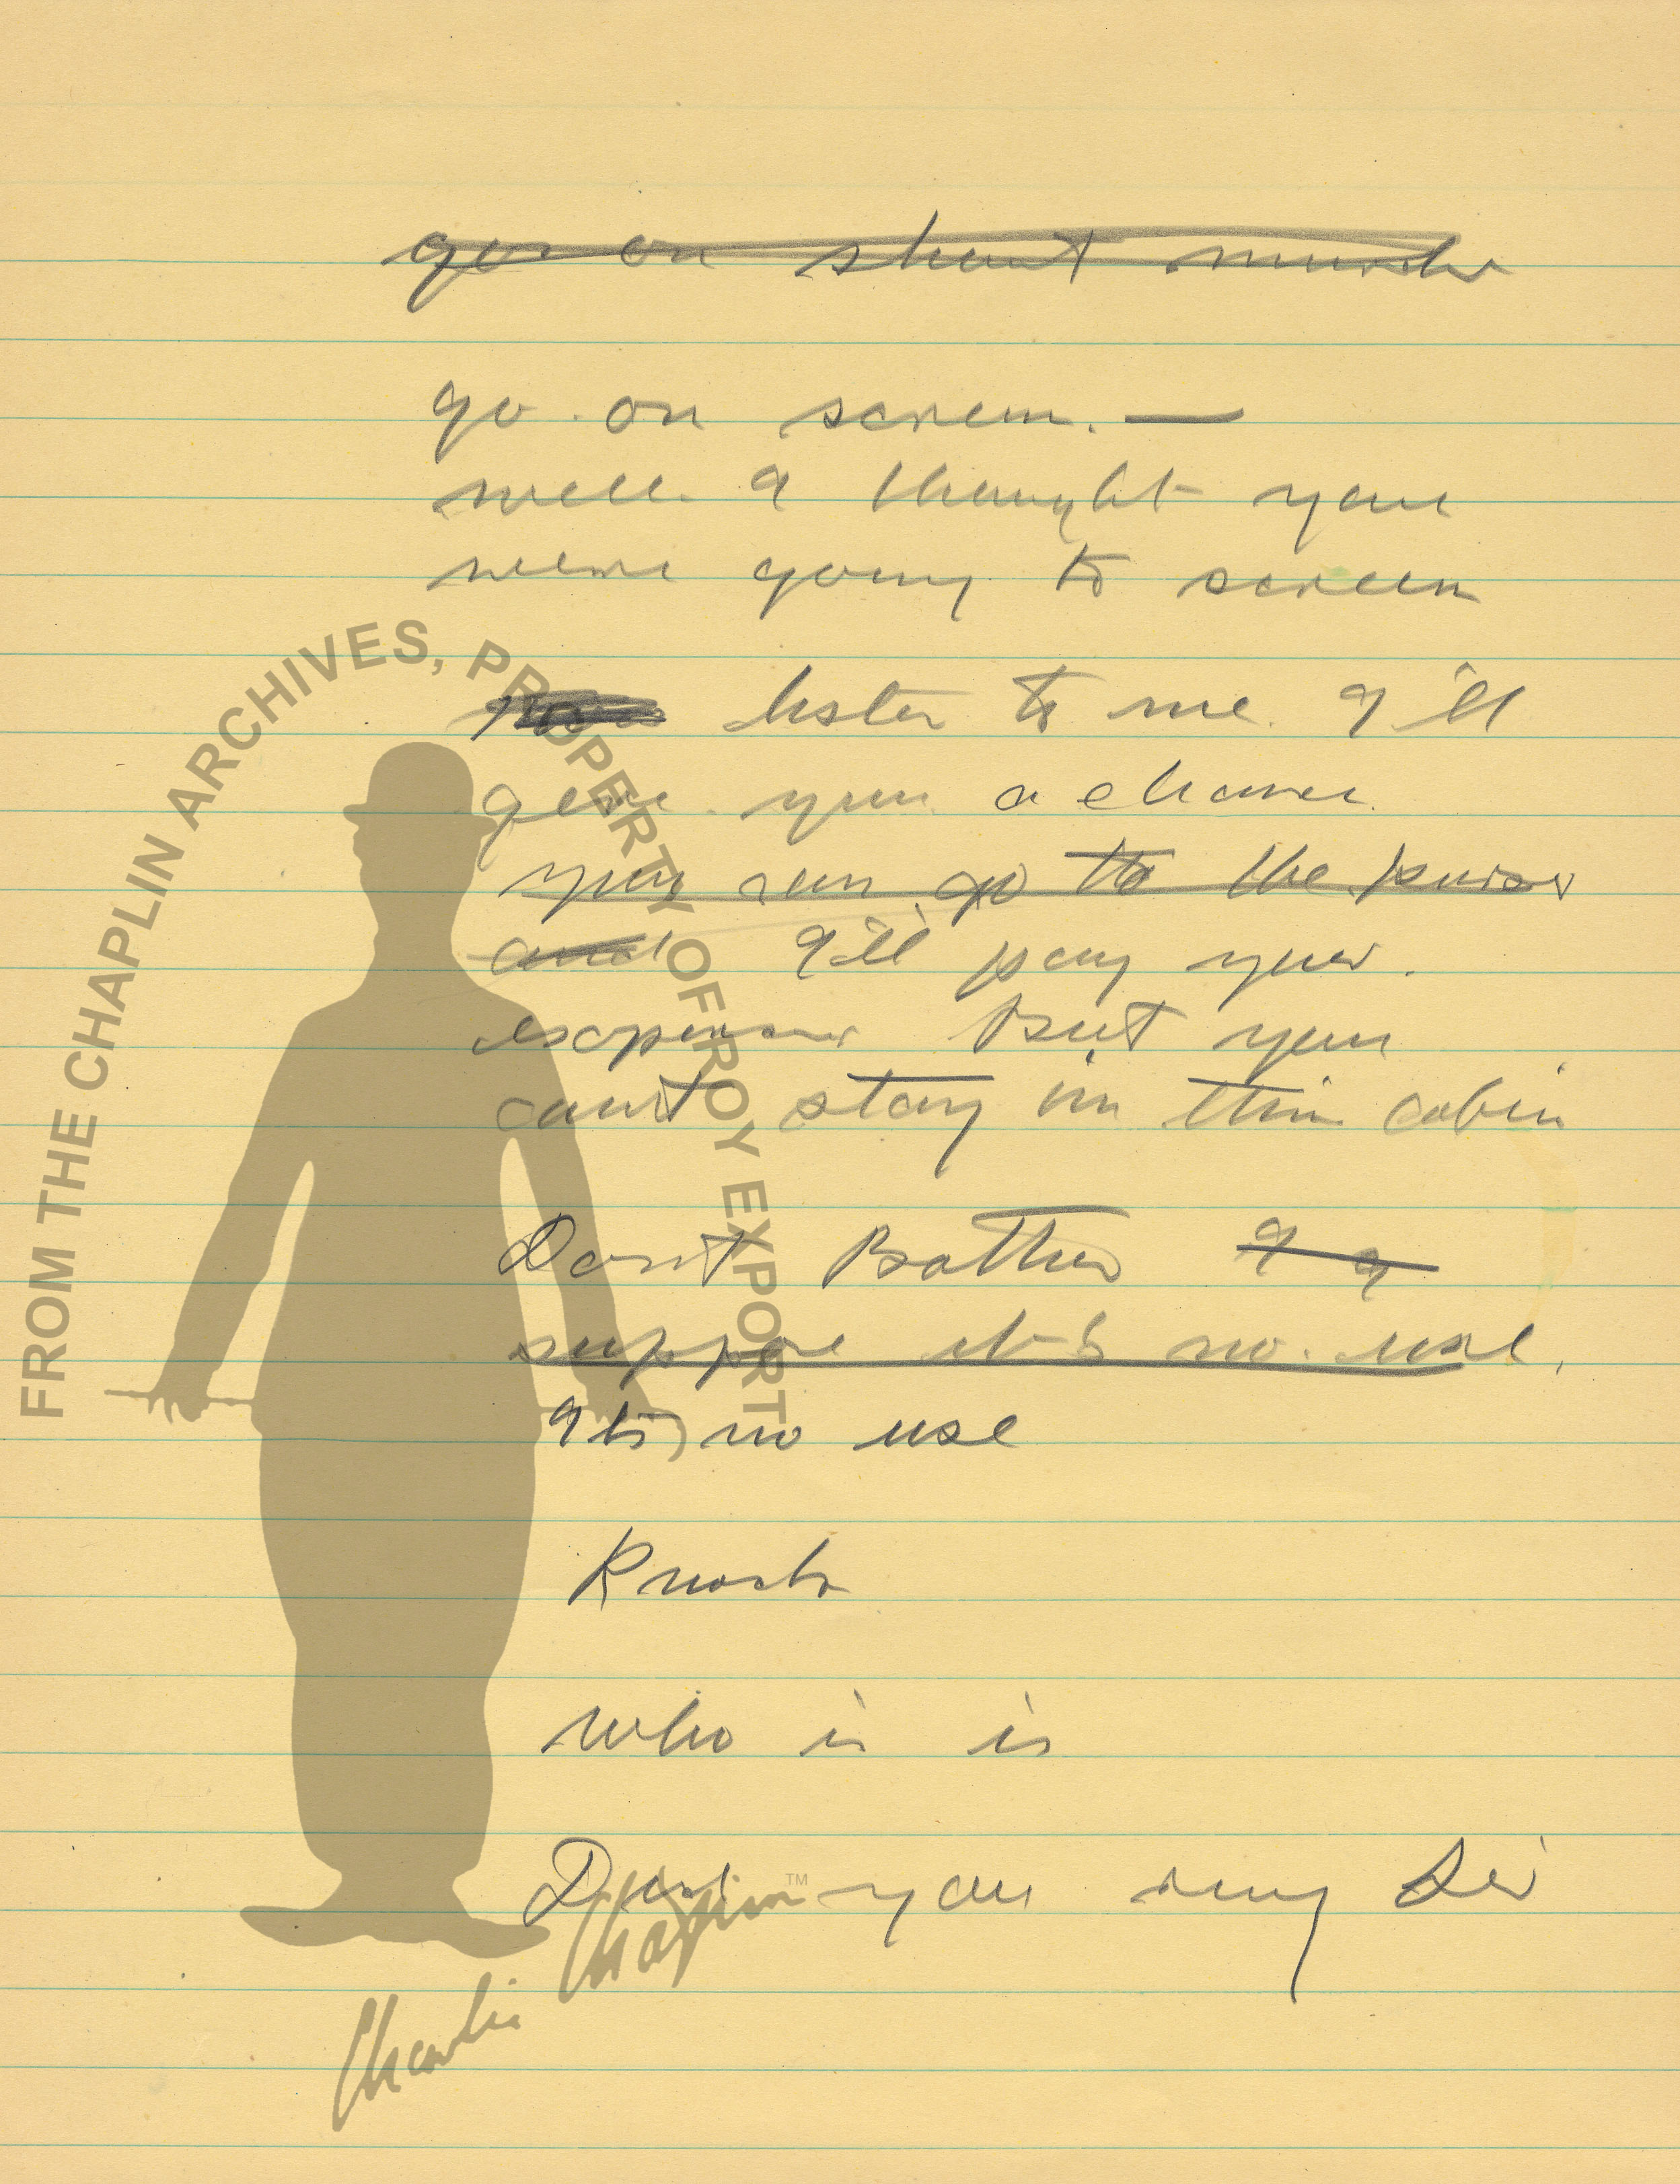 go on shout murder
go on screem. —
well. I thought you
were going to screem
listen to me. I'll
give you a chance.
you can go to the purser
and I'll pay your.
expenses But you
can't stay in this cabin
Don't Bother I a
suppose it's no. use.
Its no use
Knock
who is is
Did you ring Sir
FROM THE CHAPLIN ARCHIVES, PROPERTY OF ROY EXPORT
Charlie Chaplin™